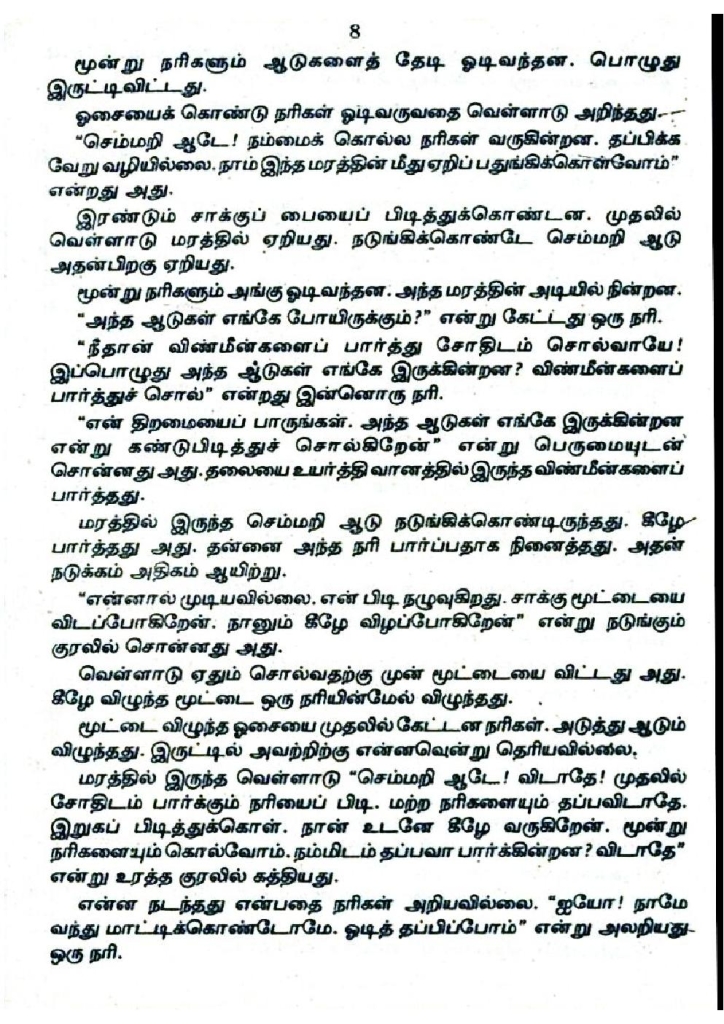 8
மூன்று நரிகளும் ஆடுகளைத் தேடி ஓடிவந்தன. பொழுது
இருட்டிவிட்டது.
ஓசையைக் கொண்டு நரிகள் ஓடிவருவதை வெள்ளாடு அறிந்தது.
“செம்மறி ஆடே! நம்மைக் கொல்ல நரிகள் வருகின்றன. தப்பிக்க
வேறு வழியில்லை. நாம் இந்த மரத்தின் மீது ஏறிப் பதுங்கிக்கொள்வோம்”
என்றது அது.
இரண்டும் சாக்குப் பையைப் பிடித்துக்கொண்டன. முதலில்
வெள்ளாடு மரத்தில் ஏறியது. நடுங்கிக்கொண்டே செம்மறி ஆடு
அதன்பிறகு ஏறியது.
மூன்று நரிகளும் அங்கு ஓடிவந்தன. அந்த மரத்தின் அடியில் நின்றன.
“அந்த ஆடுகள் எங்கே போயிருக்கும்?” என்று கேட்டது ஒரு நரி.
“நீதான் விண்மீன்களைப் பார்த்து சோதிடம் சொல்வாயே!
இப்பொழுது அந்த ஆடுகள் எங்கே இருக்கின்றன? விண்மீன்களைப்
பார்த்துச் சொல்” என்றது இன்னொரு நரி.
“என் திறமையைப் பாருங்கள். அந்த ஆடுகள் எங்கே இருக்கின்றன
என்று கண்டுபிடித்துச் சொல்கிறேன்” என்று பெருமையுடன்
சொன்னது அது. தலையை உயர்த்தி வானத்தில் இருந்த விண்மீன்களைப்
பார்த்தது.
மரத்தில் இருந்த செம்மறி ஆடு நடுங்கிக்கொண்டிருந்தது. கீழே
பார்த்தது அது. தன்னை அந்த நரி பார்ப்பதாக நினைத்தது. அதன்
நடுக்கம் அதிகம் ஆயிற்று.
“என்னால் முடியவில்லை. என் பிடி நழுவுகிறது. சாக்கு மூட்டையை
விடப்போகிறேன். நானும் கீழே விழப்போகிறேன்” என்று நடுங்கும்
குரலில் சொன்னது அது.
வெள்ளாடு ஏதும் சொல்வதற்கு முன் மூட்டையை விட்டது அது.
கீழே விழுந்த மூட்டை ஒரு நரியின்மேல் விழுந்தது.
மூட்டை விழுந்த ஓசையை முதலில் கேட்டன நரிகள். அடுத்து ஆடும்
விழுந்தது. இருட்டில் அவற்றிற்கு என்னவென்று தெரியவில்லை.
மரத்தில் இருந்த வெள்ளாடு “செம்மறி ஆடே! விடாதே! முதலில்
சோதிடம் பார்க்கும் நரியைப் பிடி. மற்ற நரிகளையும் தப்பவிடாதே.
இறுகப் பிடித்துக்கொள். நான் உடனே கீழே வருகிறேன். மூன்று
நரிகளையும் கொல்வோம். நம்மிடம் தப்பவா பார்க்கின்றன? விடாதே”
என்று உரத்த குரலில் கத்தியது.
என்ன நடந்தது என்பதை நரிகள் அறியவில்லை. “ஐயோ! நாமே
வந்து மாட்டிக்கொண்டோமே. ஓடித் தப்பிப்போம்” என்று அலறியது
ஒரு நரி.